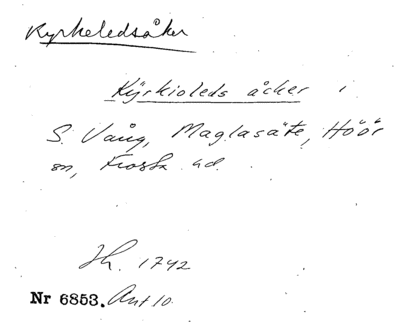 Kyrkeledsåker
Kÿrkioleds åcker i
S. Vång, Maglasäte, Höör
sn, Frosta hd.
Jh. 1742
Nr 6853. Ant 10.